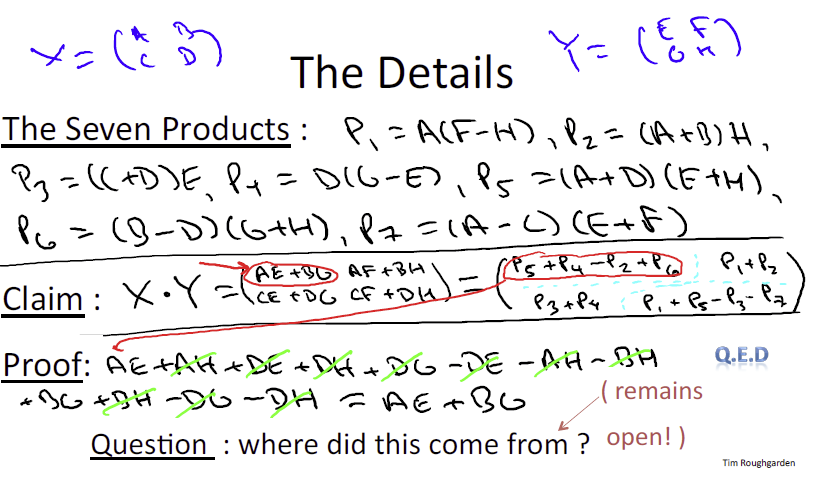 X = (A B
C D)
Y = (E F
G H)
The Details
The Seven Products : P₁ = A(F-H), P₂ = (A+B)H,
P₃ = (C+D)E, P₄ = D(G-E), P₅ = (A+D)(E+H),
P₆ = (B-D)(G+H), P₇ = (A-C)(E+F)
Claim : X·Y = (AE+BG AF+BH
CE+DG CF+DH) = (P₅+P₄-P₂+P₆ P₁+P₂
P₃+P₄ P₁+P₅-P₃-P₇)
Proof: AE+AH+DE+DH+DG-DE-AH-BH
+BG+BH-DG-DH = AE+BG
Q.E.D
Question : where did this come from ? (remains
open!)
Tim Roughgarden